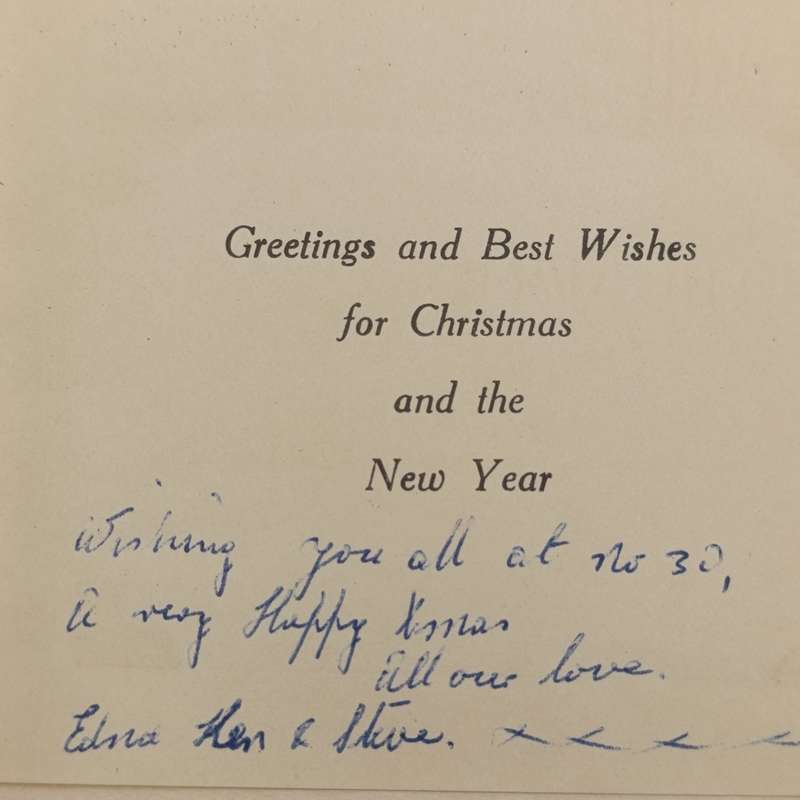 Greetings and Best Wishes
for Christmas
and the
New Year
Wishing you all at No 30,
A very Happy Xmas
All our love.
Edna Ken & Steve. x x x x